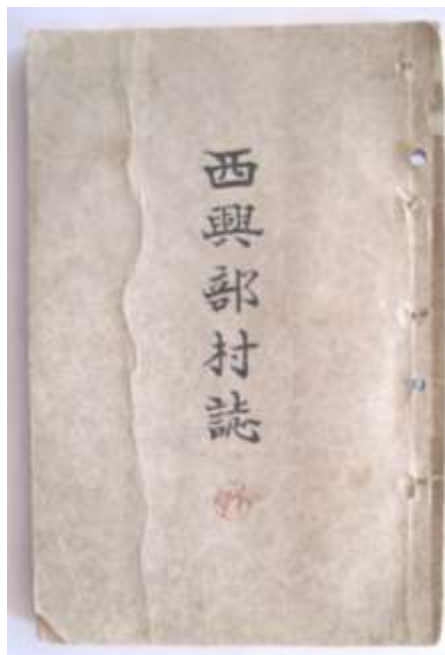 西興部村誌